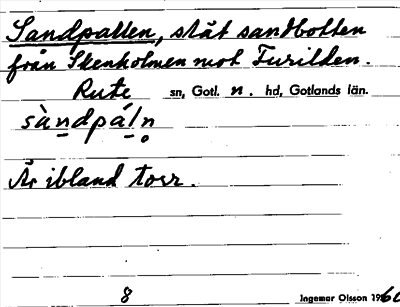 Sandpallen, slät sandbotten
från Skenholmen mot Furilden.
Rute sn, Gotl. n. hd, Gotlands län.
sàndpáln
Är ibland torr.
8 Ingemar Olsson 1960